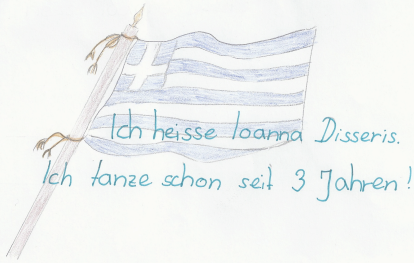 Ich heisse Ioanna Disseris.
Ich tanze schon seit 3 Jahren!